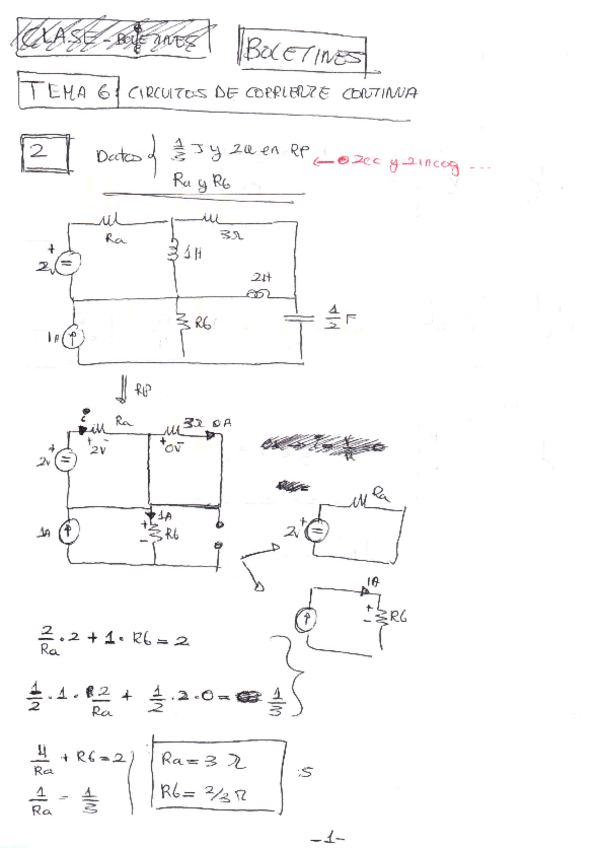 CLASE - BOLETINES
BOLETINES
TEMA 6 CIRCUITOS DE CORRIENTE CONTINUA
2
Datos { 1/3 J y 2W en RP
Ra y R6
← 2ec y 2incog ...
Ra
3Ω
1H
2V
2H
R6
1/2 F
1A
RP
i
Ra
3Ω 0A
2V
+ 2V -
+ 0V -
1A
1A
R6
Ra
2V
1A
R6
2/Ra · 2 + 1 · R6 = 2
1/2 · 1 · 2/Ra + 1/2 · 2 · 0 = 1/3
4/Ra + R6 = 2
1/Ra = 1/3
Ra = 3 Ω
R6 = 2/3 Ω
-1-